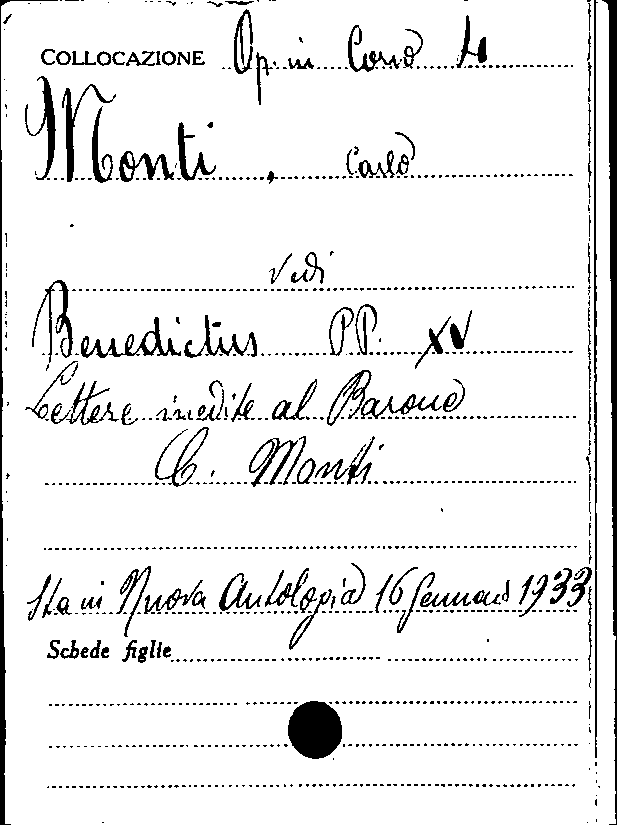 COLLOCAZIONE Op. in Corso 4
Monti, Carlo
Vedi
Benedictus PP. XV
Lettere inedite al Barone
C. Monti
Sta in Nuova Antologia 16 Gennaio 1933
Schede figlie